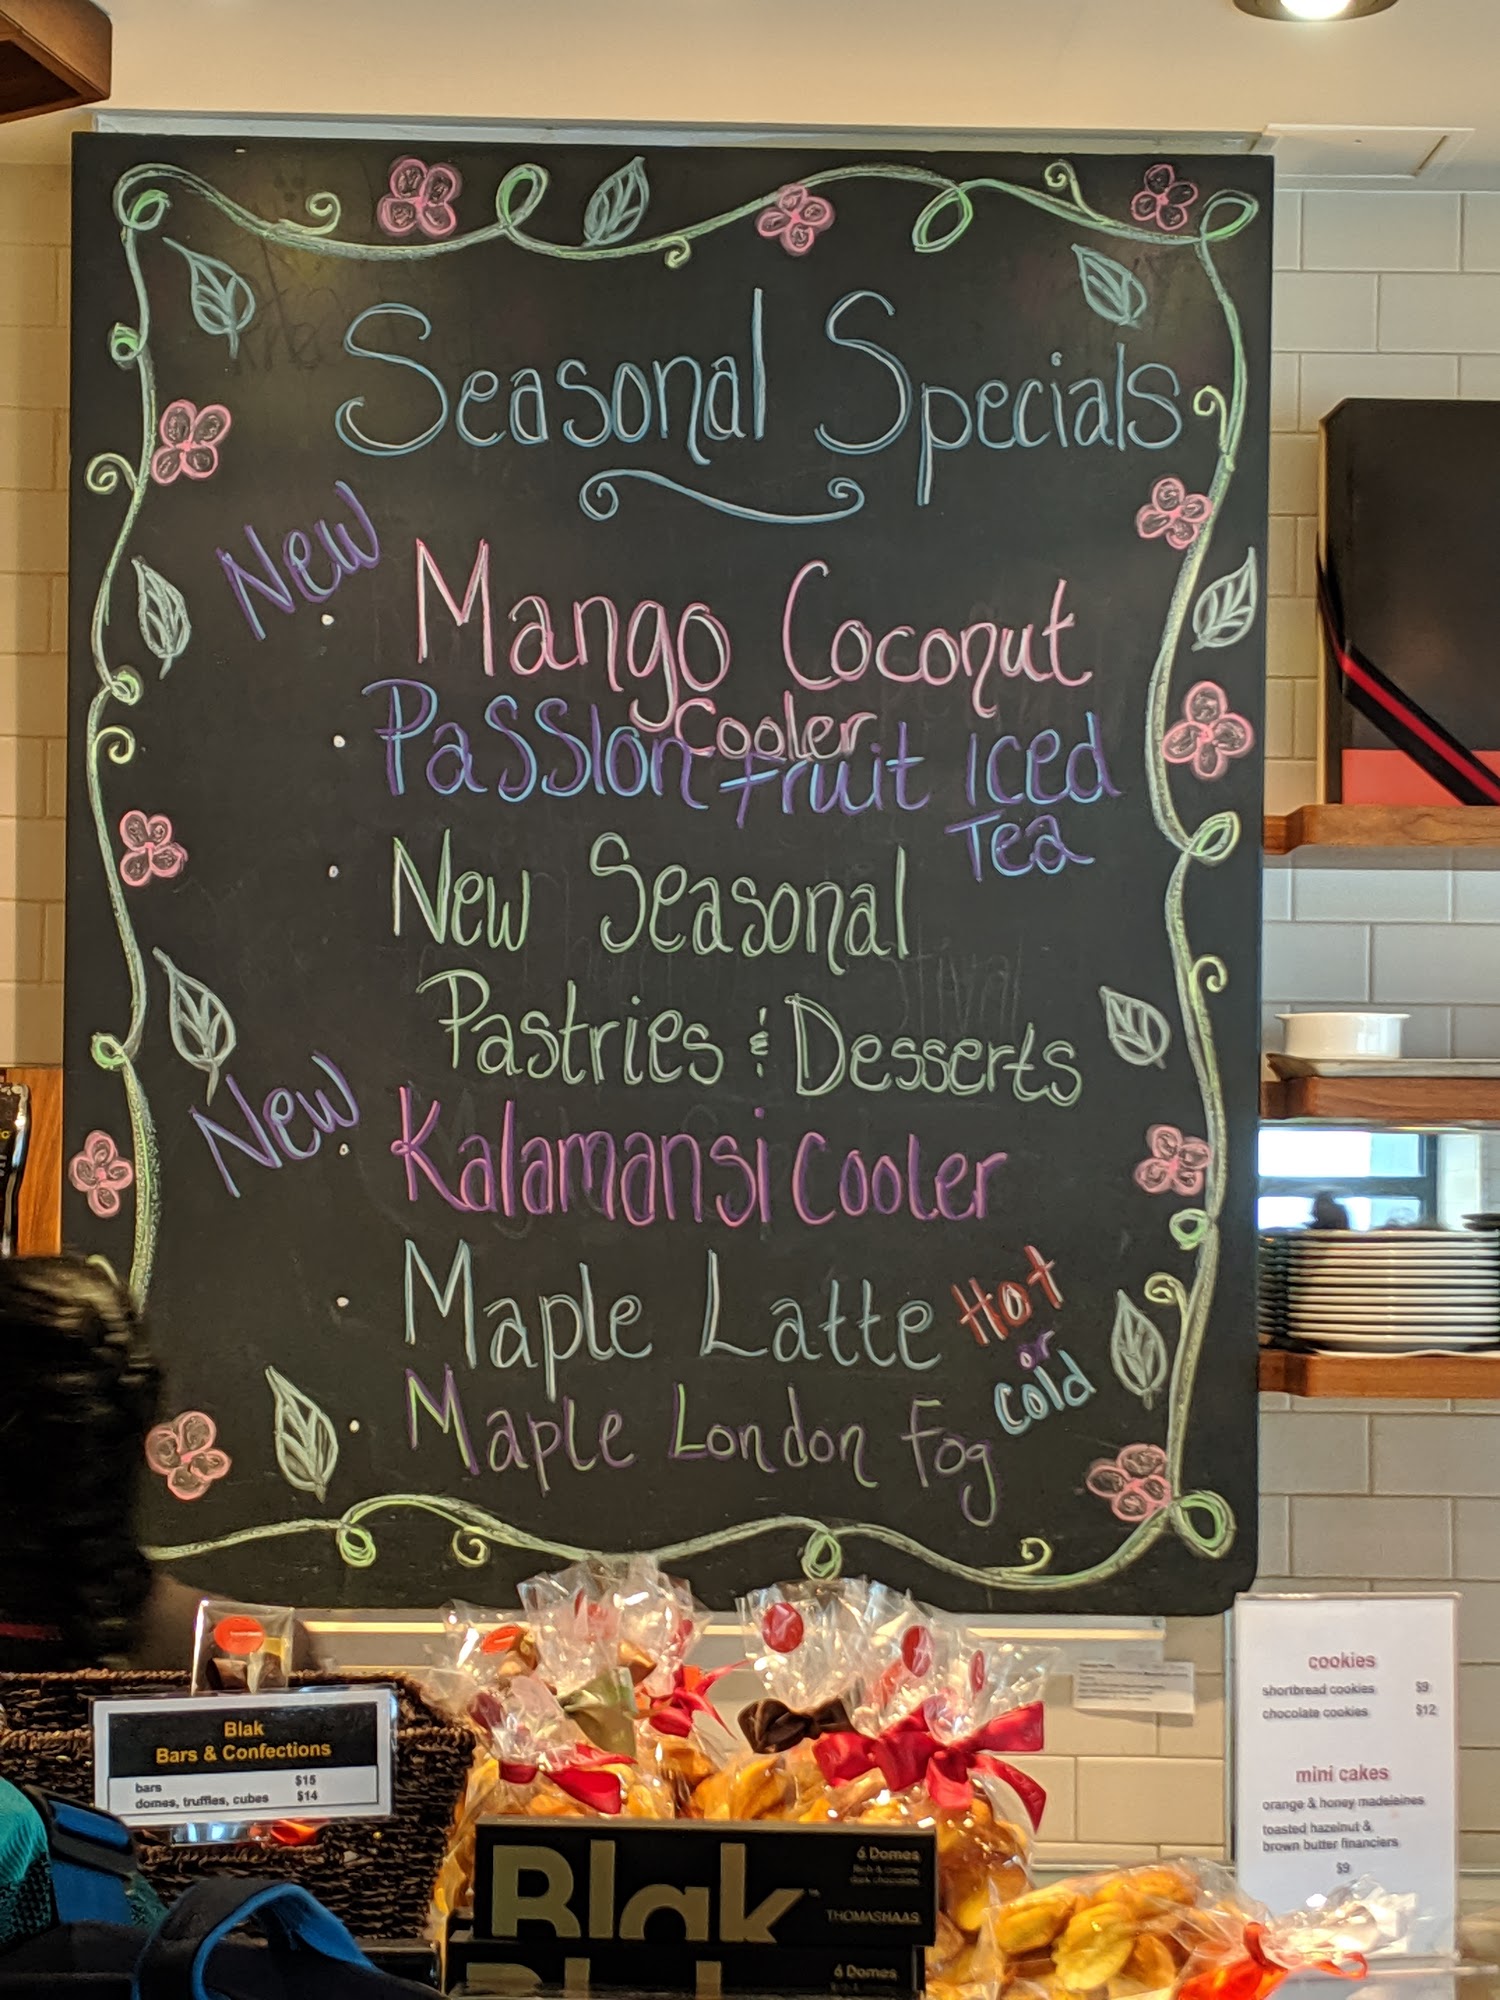 Seasonal Specials
New
• Mango Coconut
Cooler
• Passion fruit Iced
Tea
• New Seasonal
Pastries & Desserts
New
• Kalamansi Cooler
• Maple Latte Hot
or
Cold
• Maple London Fog
Blak
Bars & Confections
bars $15
domes, truffles, cubes $14
Blak™
6 Domes
Rich & creamy
dark chocolate
THOMASHAAS
6 Domes
cookies
shortbread cookies $9
chocolate cookies $12
mini cakes
orange & honey madeleines
toasted hazelnut &
brown butter financiers
$9